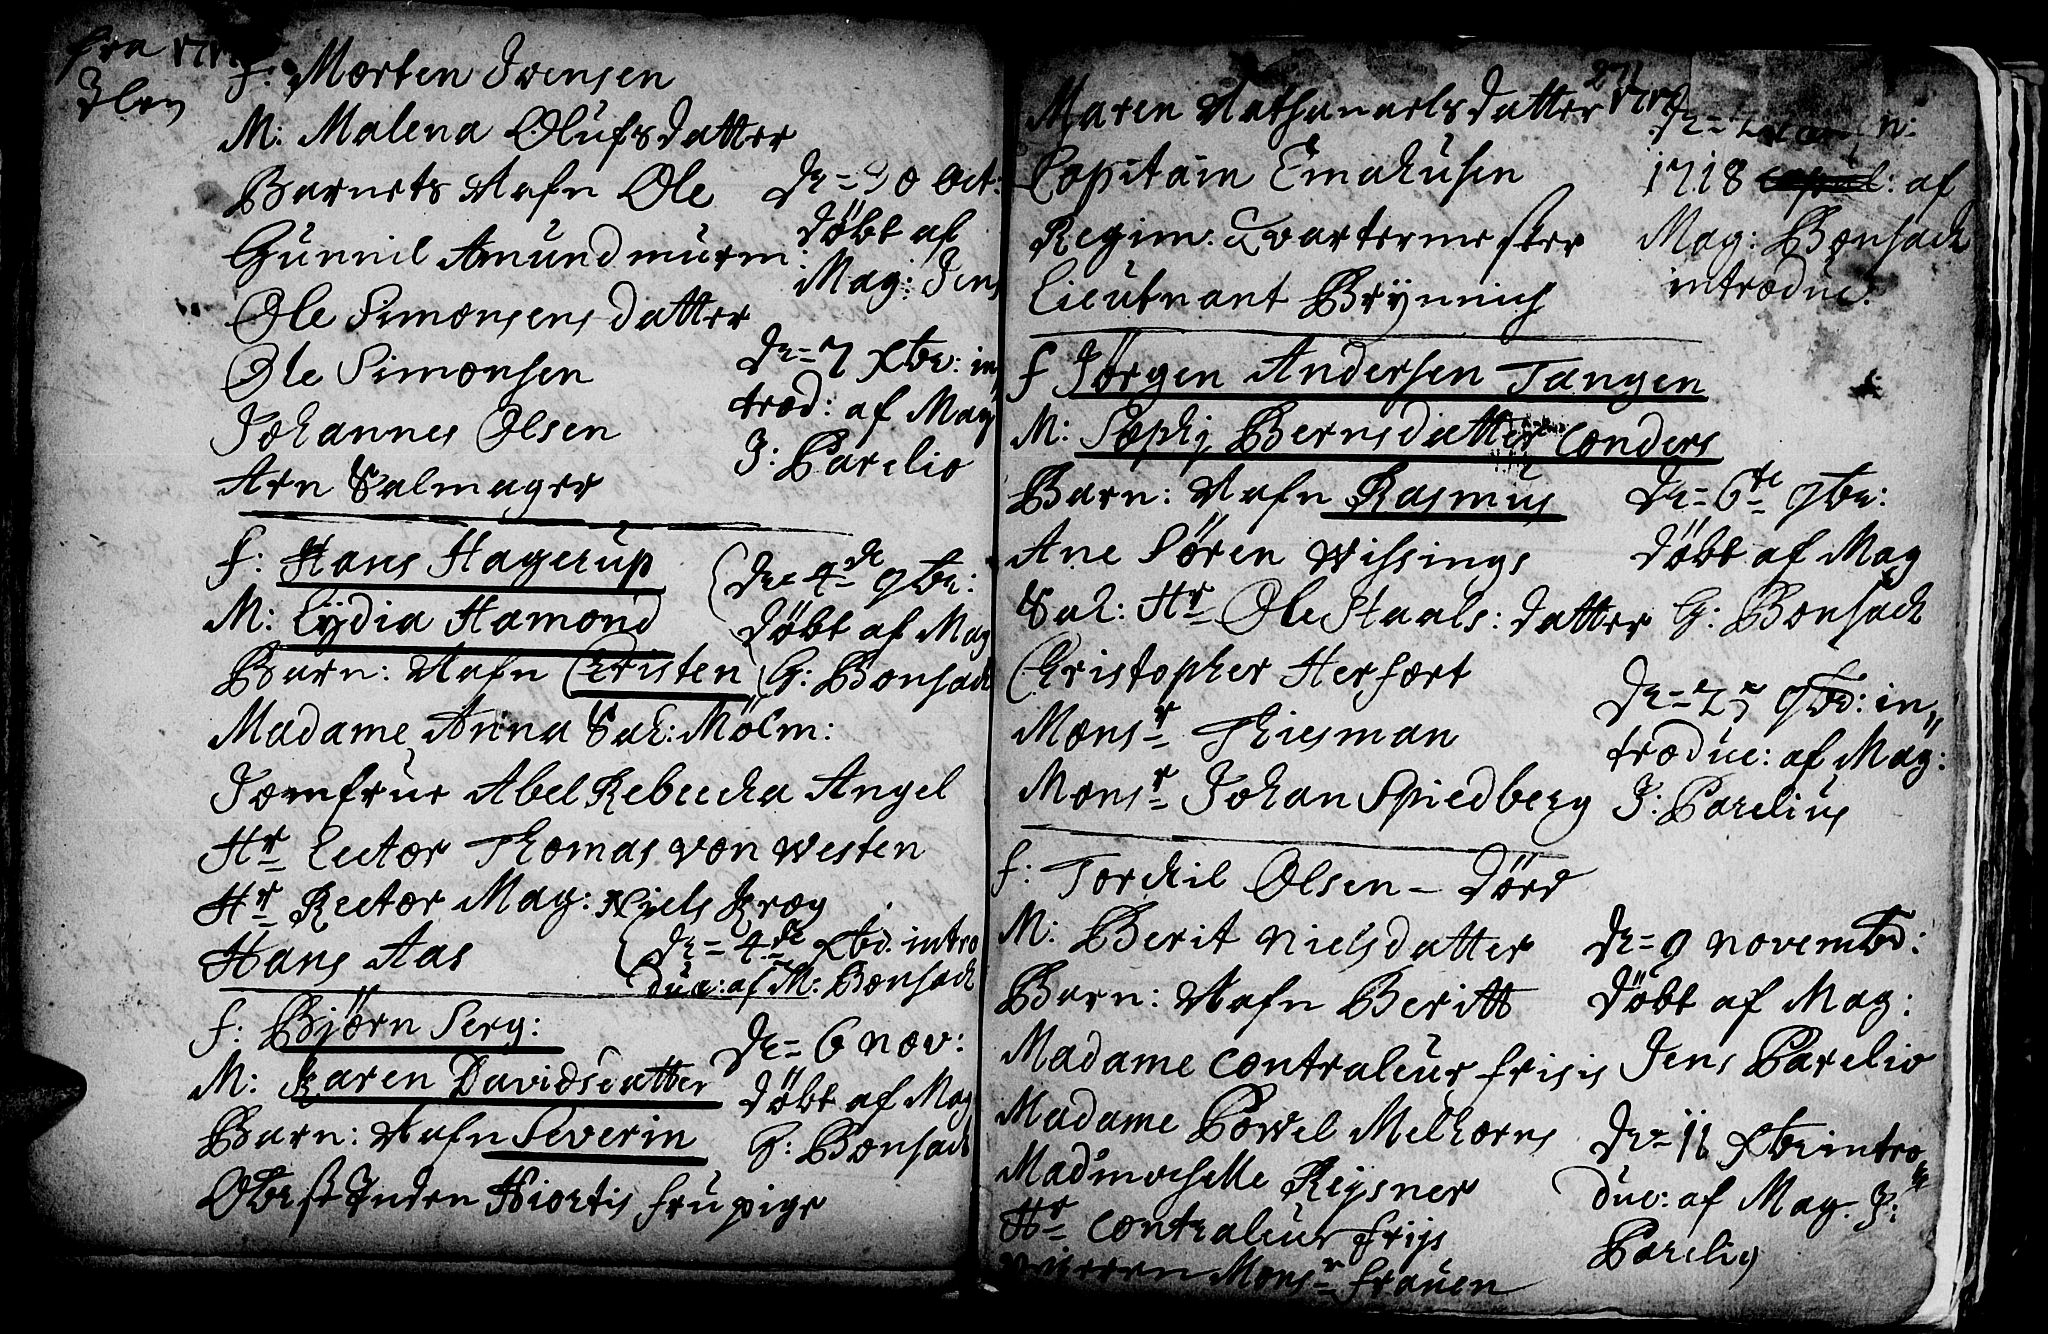 fra
F: Morten Ivensen
M: Malena Olufsdatter
Barnets Nafn Ole
Gunnil Amundmurm:
Ole Simonsens datter
Ole Simonsen
Johannes Olsen
Arn Salmager
De= 30 Oct:
döbt af
Mag: Jens
De= 7 Xbr: in
trod: af Mag
J: Parelio
F: Hans Hagerup
M: Lÿdia Hamond
Barn: Nafn Christen
Madame Anna Sal: Molm:
Jomfrue Abel Rebecka Angel
Hr Lector Thomas von Westen
Hr Rector Mag: Niels Krog
Hans Aas
De= 4de 9br:
döbt af Mag
G: Bonsach
De= 4de Xbr. intro
duc: af M: Bonsach
F: Bjørn Serg:
M: Karen Davidsdatter
Barn: Nafn Severin
Obrst Hiortis frupige
De= 6 nov:
döbt af Mag
G: Bonsach
271
Maren Nathanaelsdatter
Capitain Emahusen
Regim. Qvartermester
Lieutnant Brÿnnich
1718 af
Mag: Bonsach
introduc:
F Jörgen Andersen Tangen
M: Sophj Bernsdatter Conders
Barn: Nafn Rasmus
Ane Sören Wissings
Sal: Hr Ole Staals: datter
Christopher Herfort
Monsr Thiesman
Monsr Johan Spiedberg
De= 6te 9br:
döbt af Mag
G: Bonsach
De= 9br: in„
troduc: af Mag:
J: Parelius
F: Torchil Olsen – dörd
M: Berit Nielsdatter
Barn: Nafn Beritt
Madame Contraleur frisis
Madame Powel Melhorns
Madmoselle Reÿsner
Hr Contraleur frijs
Monsr frauen
De= 9 novembr:
döbt af Mag:
Jens Parelio
De= 11 Xbr intro
duc: af Mag. J:
Parelio